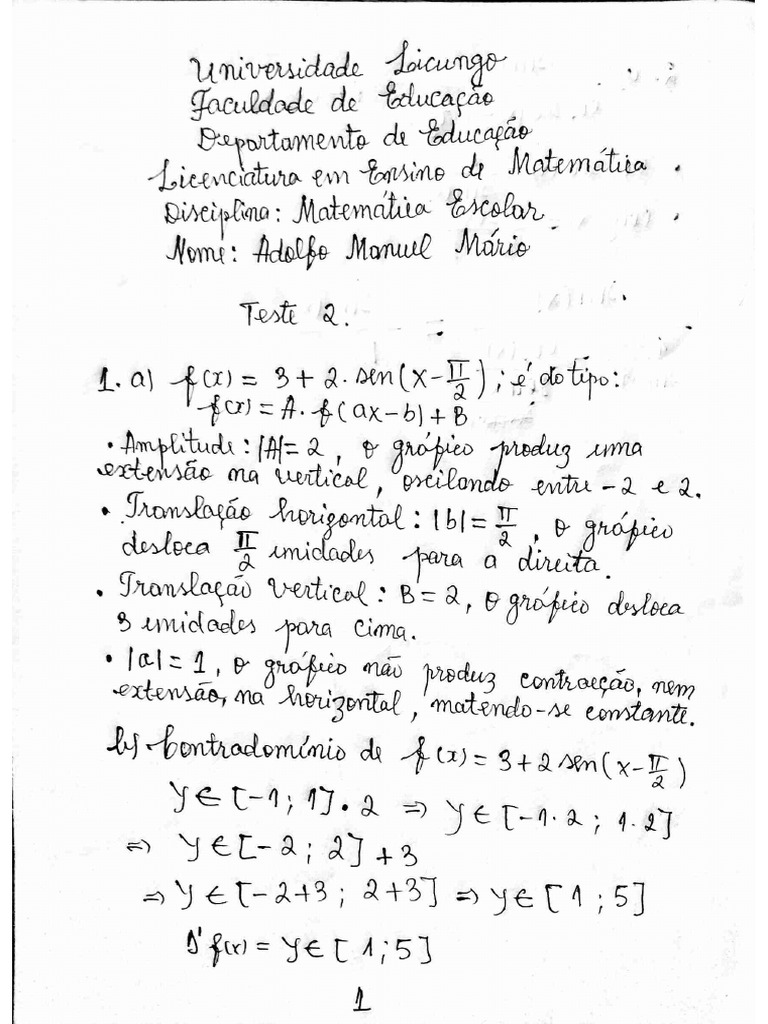 Universidade Licungo
Faculdade de Educação
Departamento de Educação
Licenciatura em Ensino de Matemática.
Disciplina: Matemática Escolar
Nome: Adolfo Manuel Mário
Teste 2.
1. a) f(x) = 3 + 2. sen(x - π/2); é do tipo:
f(x) = A. f(ax - b) + B
• Amplitude: |A| = 2, o gráfico produz uma
extensão na vertical, oscilando entre -2 e 2.
• Translação horizontal: |b| = π/2, o gráfico
desloca π/2 unidades para a direita.
• Translação vertical: B = 2, o gráfico desloca
3 unidades para cima.
• |a| = 1, o gráfico não produz contracção, nem
extensão, na horizontal, matendo-se constante.
b) Contradomínio de f(x) = 3 + 2 sen(x - π/2)
y ∈ [-1; 1] . 2 ⇒ y ∈ [-1.2; 1.2]
⇒ y ∈ [-2; 2] + 3
⇒ y ∈ [-2+3; 2+3] ⇒ y ∈ [1; 5]
D'f(x) = y ∈ [1; 5]
1